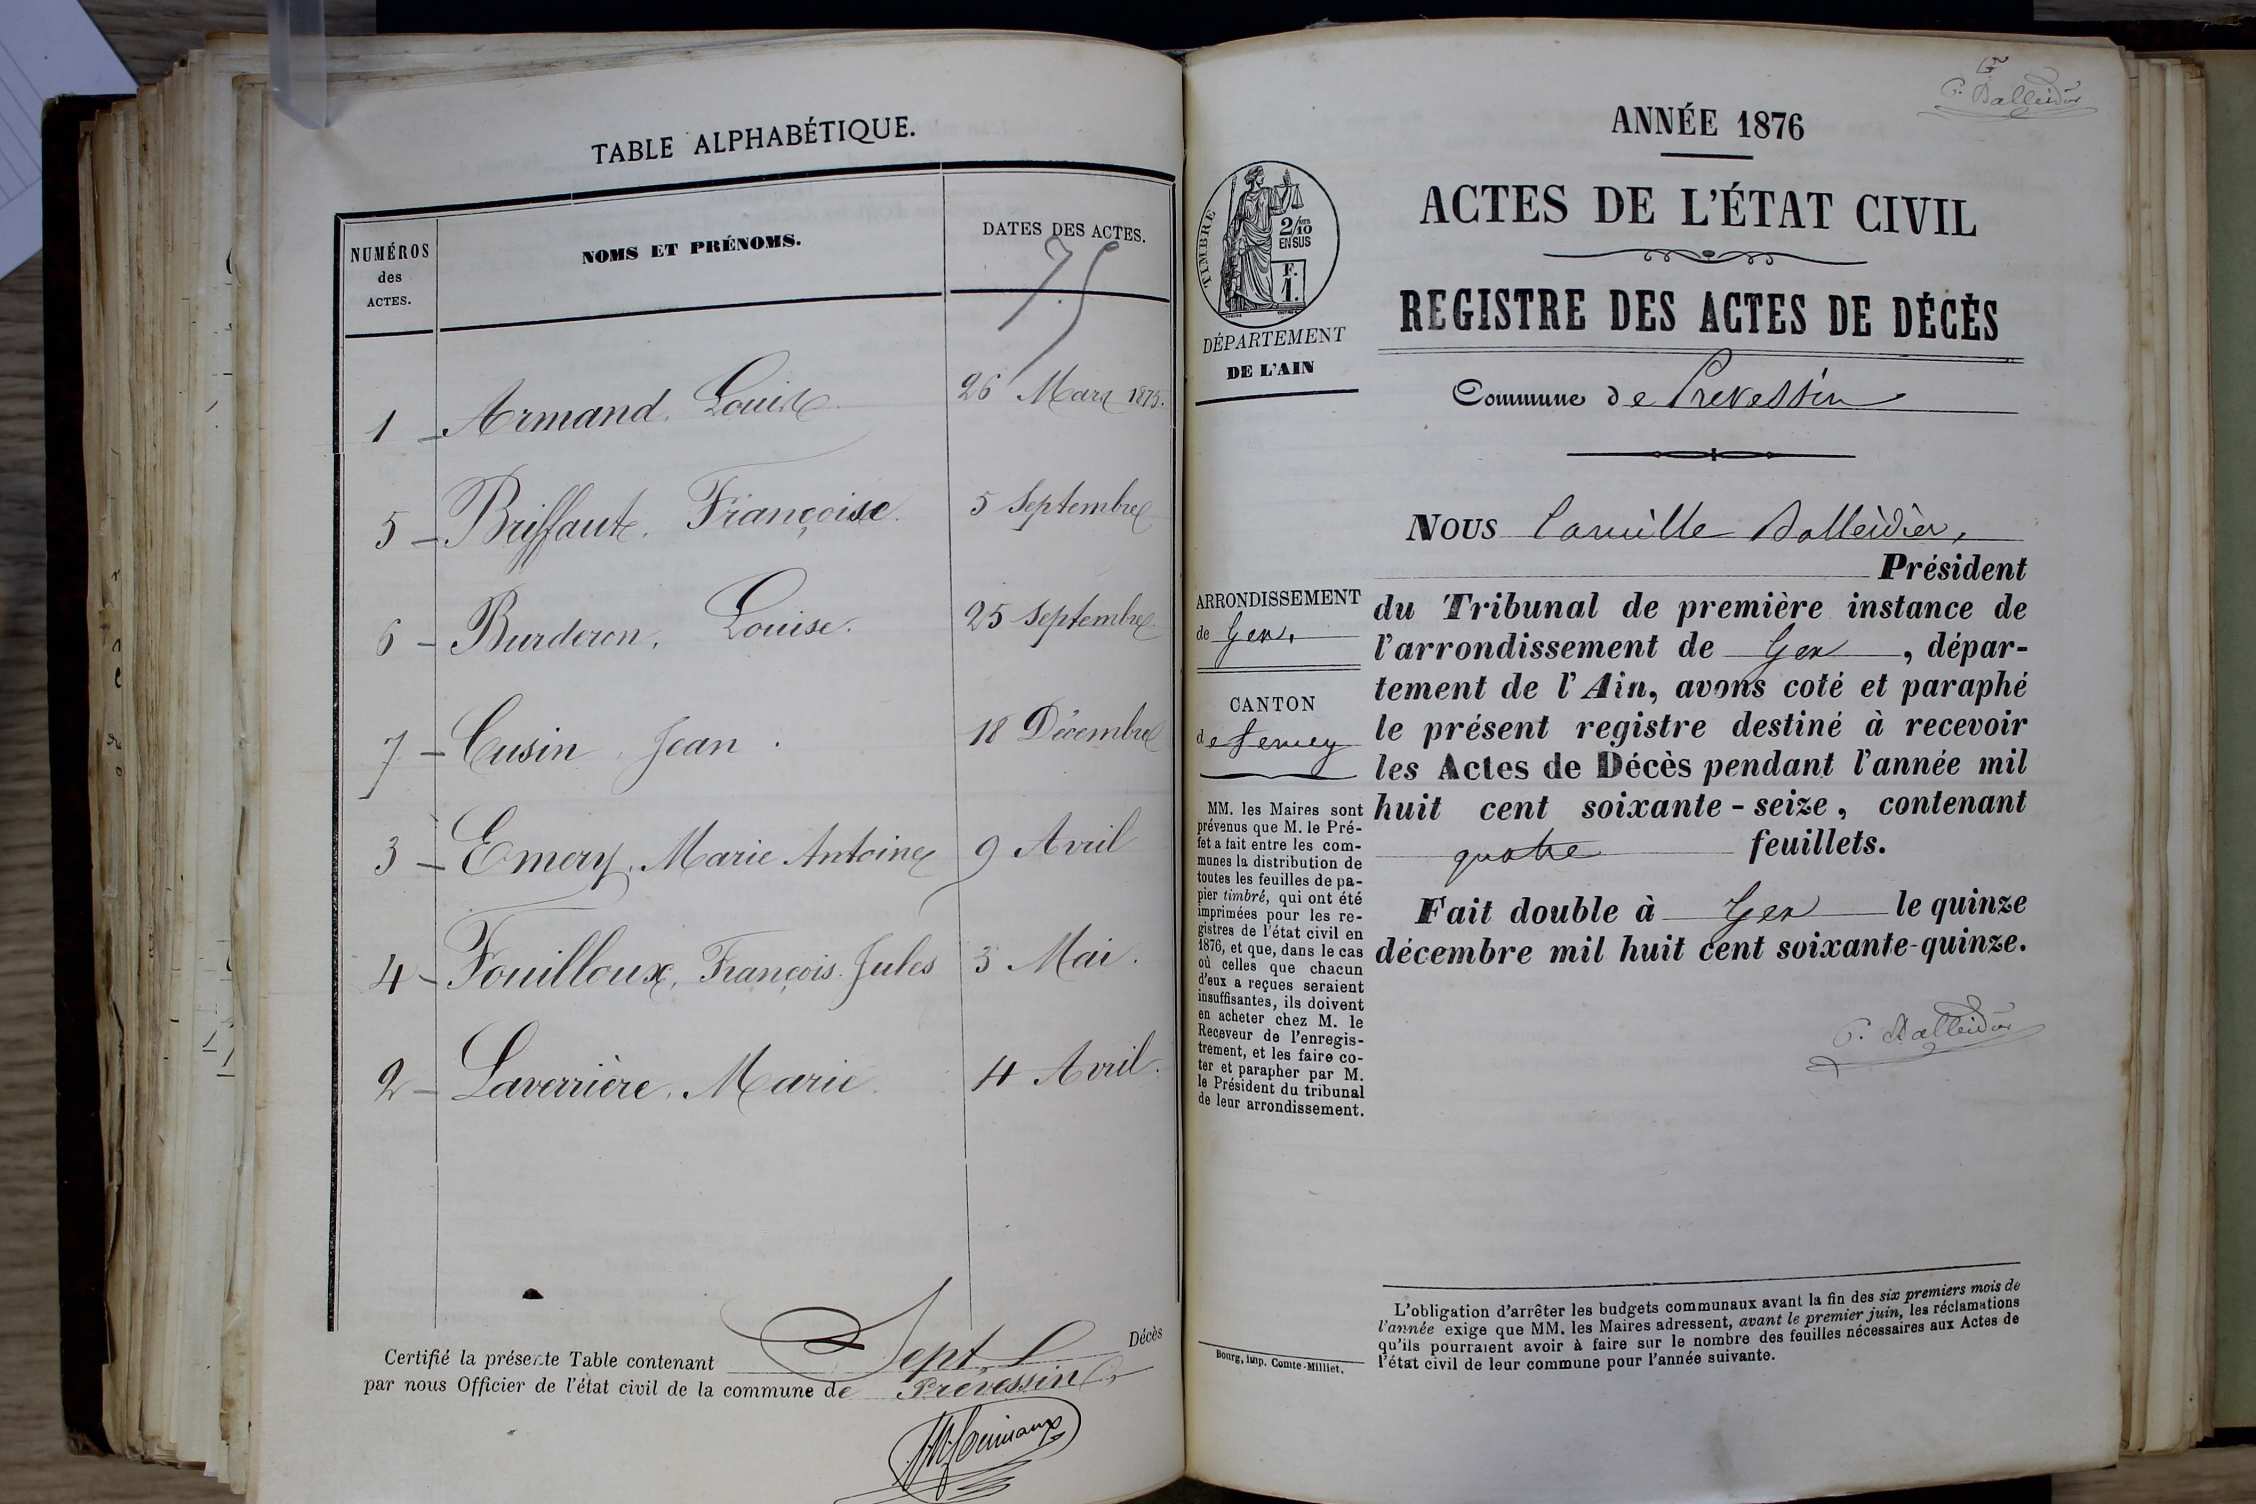 TABLE ALPHABÉTIQUE.
NUMÉROS
des
ACTES.
NOMS ET PRÉNOMS.
DATES DES ACTES.
75
1 - Armand, Louise 26 Mars 1875.
5 - Briffaut, Françoise. 5 Septembre
6 - Burderon, Louise. 25 Septembre
7 - Cusin, Jean. 18 Décembre
3 - Emery, Marie Antoine 9 Avril
4 - Fouilloux, François Jules 3 Mai.
2 - Laverrière, Marie 4 Avril.
Certifié la présente Table contenant Sept Décès
par nous Officier de l'état civil de la commune de Prévessin
ANNÉE 1876
ACTES DE L'ÉTAT CIVIL
REGISTRE DES ACTES DE DÉCÈS
TIMBRE
2/10
EN SUS
F.
1.
DÉPARTEMENT
DE L'AIN
Commune de Prevessin
NOUS Camille Balleidier,
Président
du Tribunal de première instance de
l'arrondissement de Gex, dépar-
tement de l'Ain, avons coté et paraphé
le présent registre destiné à recevoir
les Actes de Décès pendant l'année mil
huit cent soixante-seize, contenant
quatre feuillets.
Fait double à Gex le quinze
décembre mil huit cent soixante-quinze.
C. Balleidier
ARRONDISSEMENT
de Gex.
CANTON
de Ferney
MM. les Maires sont
prévenus que M. le Pré-
fet a fait entre les com-
munes la distribution de
toutes les feuilles de pa-
pier timbré, qui ont été
imprimées pour les re-
gistres de l'état civil en
1876, et que, dans le cas
où celles que chacun
d'eux a reçues seraient
insuffisantes, ils doivent
en acheter chez M. le
Receveur de l'enregis-
trement, et les faire co-
ter et parapher par M.
le Président du tribunal
de leur arrondissement.
Bourg, imp. Comte-Milliet.
L'obligation d'arrêter les budgets communaux avant la fin des six premiers mois de
l'année exige que MM. les Maires adressent, avant le premier juin, les réclamations
qu'ils pourraient avoir à faire sur le nombre des feuilles nécessaires aux Actes de
l'état civil de leur commune pour l'année suivante.